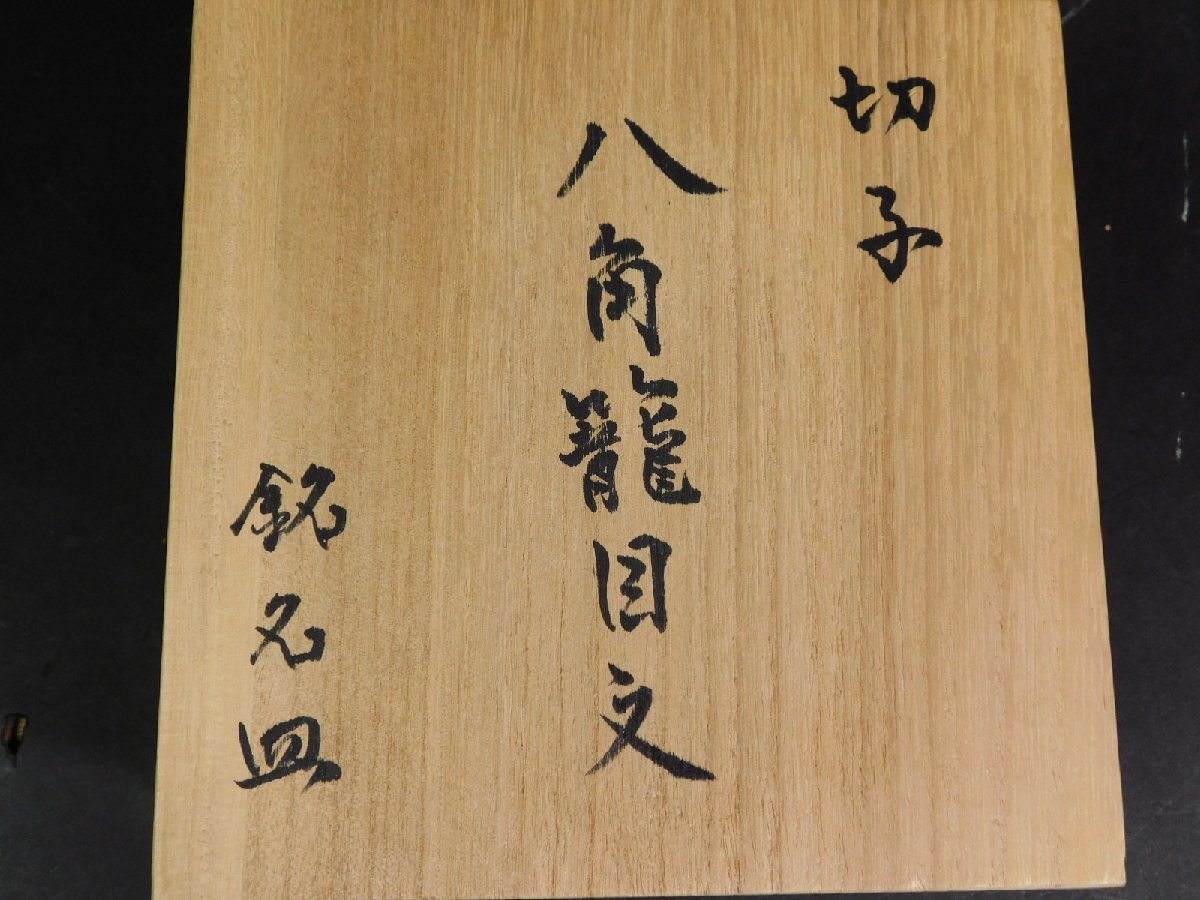 切子
八角籠目文
銘々皿